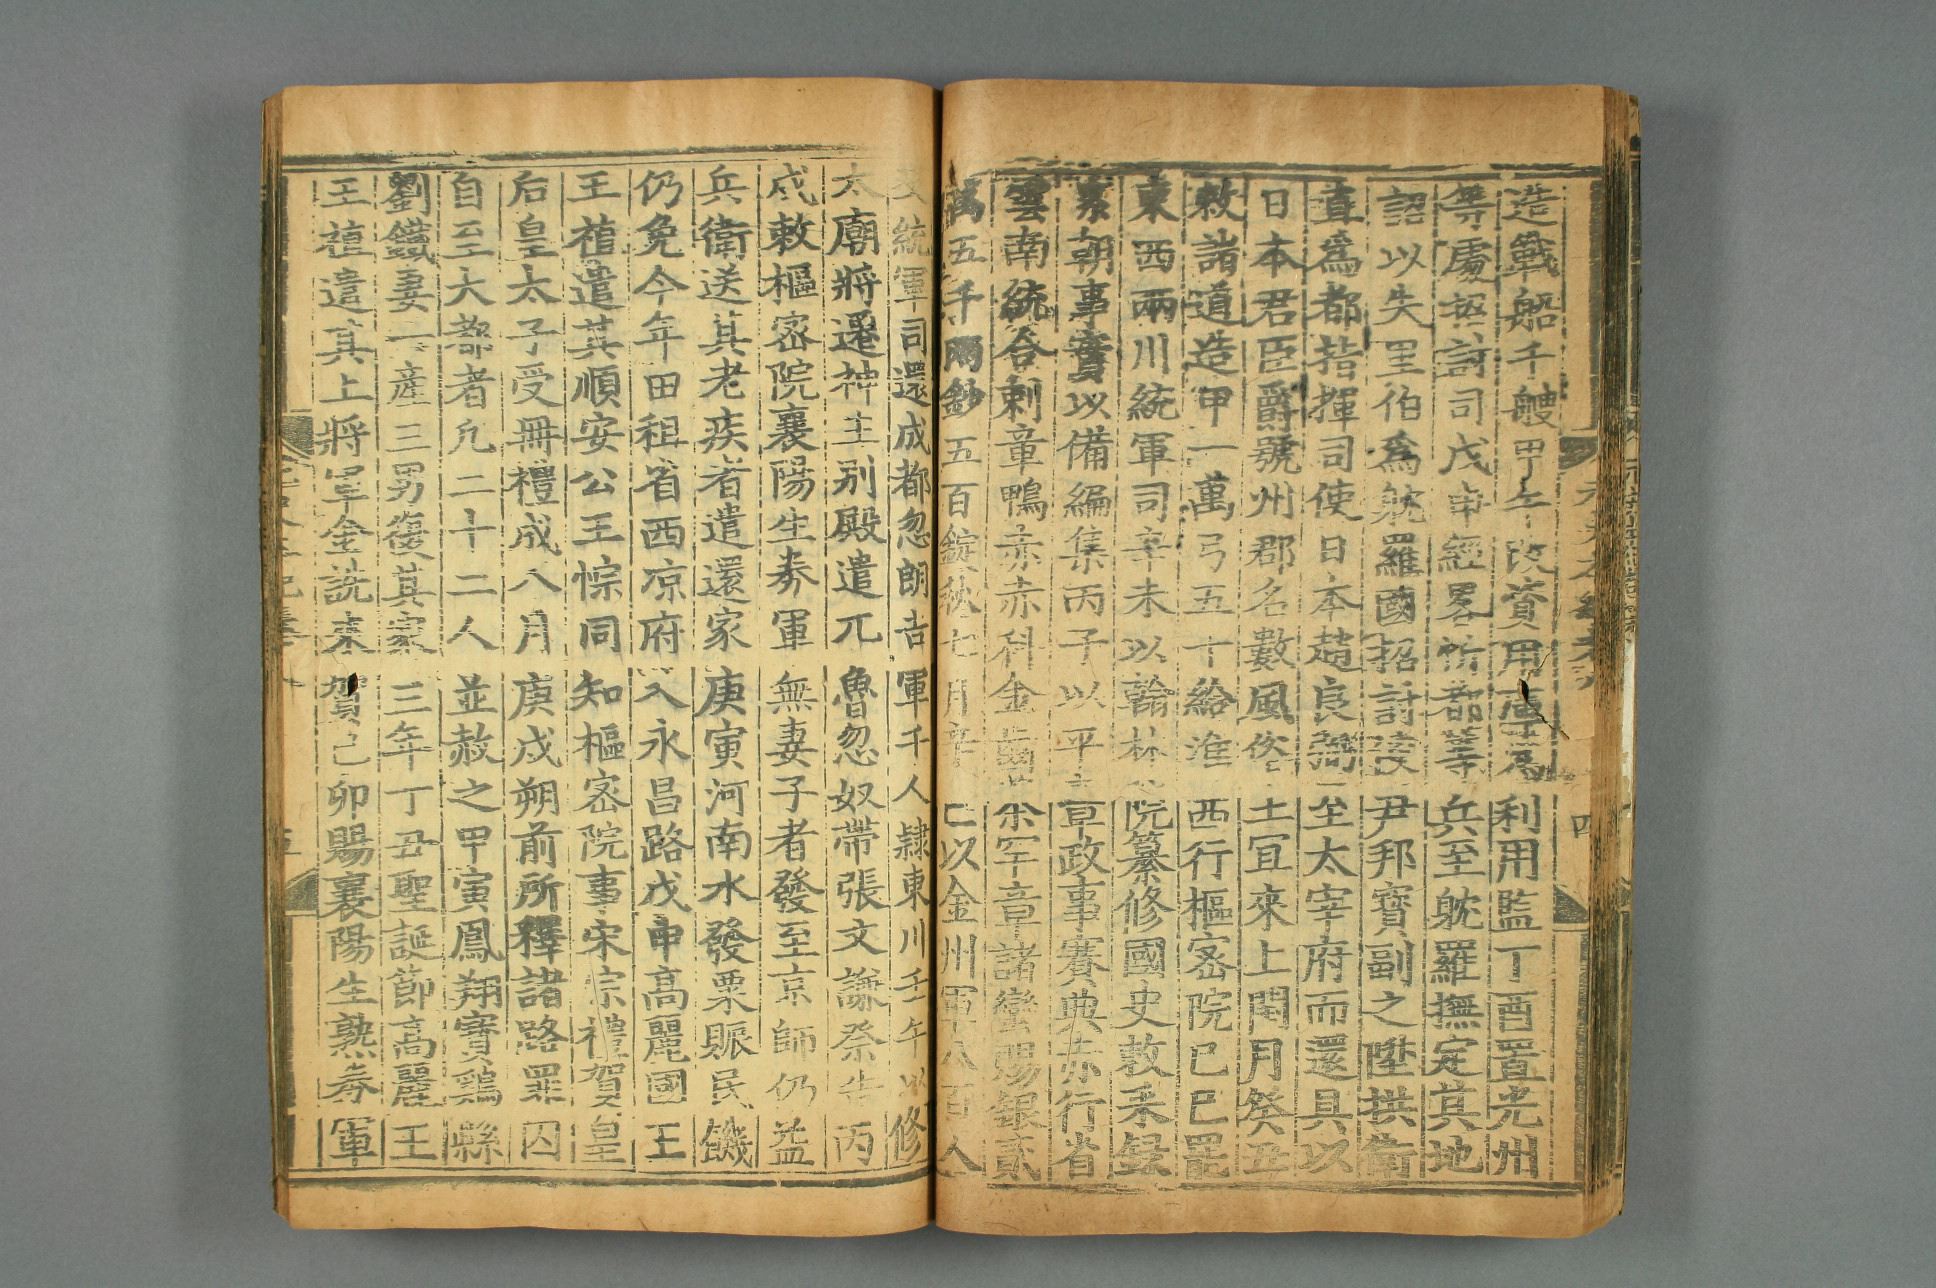 造戰船千艘甲午改資用庫爲利用監丁酉置光州
等處招討司戊申經畧忻都等兵至躭羅撫定其地
詔以失里伯爲躭羅國招討使尹邦寶副之陞拱衛
直爲都指揮司使日本趙良弼至太宰府而還具以
日本君臣爵號州郡名數風俗土宜來上閏月癸丑
敕諸道造甲一萬弓五十給淮西行樞密院己巳罷
東西兩川統軍司辛未以翰林院纂修國史敕采録
累朝事實以備編集丙子以平章政事賽典赤行省
雲南統合剌章鴨赤赤科金齒茶罕章諸蠻賜銀貳
萬五千兩鈔五百錠秋七月辛巳以金州軍八百人
及統軍司還成都忽朗吉軍千人隷東川壬午以修
太廟將遷神主别殿遣兀魯忽奴帶張文謙祭告丙
戌敕樞密院襄陽生券軍無妻子者發至京師仍益
兵衛送其老疾者遣還家庚寅河南水發粟賑民饑
仍免今年田租省西凉府入永昌路戊申高麗國王
王禃遣其順安公王悰同知樞密院事宋宗禮賀皇
后皇太子受冊禮成八月庚戌朔前所釋諸路罪囚
自至大都者凢二十二人並赦之甲寅鳳翔寶鷄縣
劉鐵妻一產三男復其家三年丁丑聖誕節高麗王
王禃遣其上將軍金詵來賀己卯賜襄陽生熟券軍
四
五